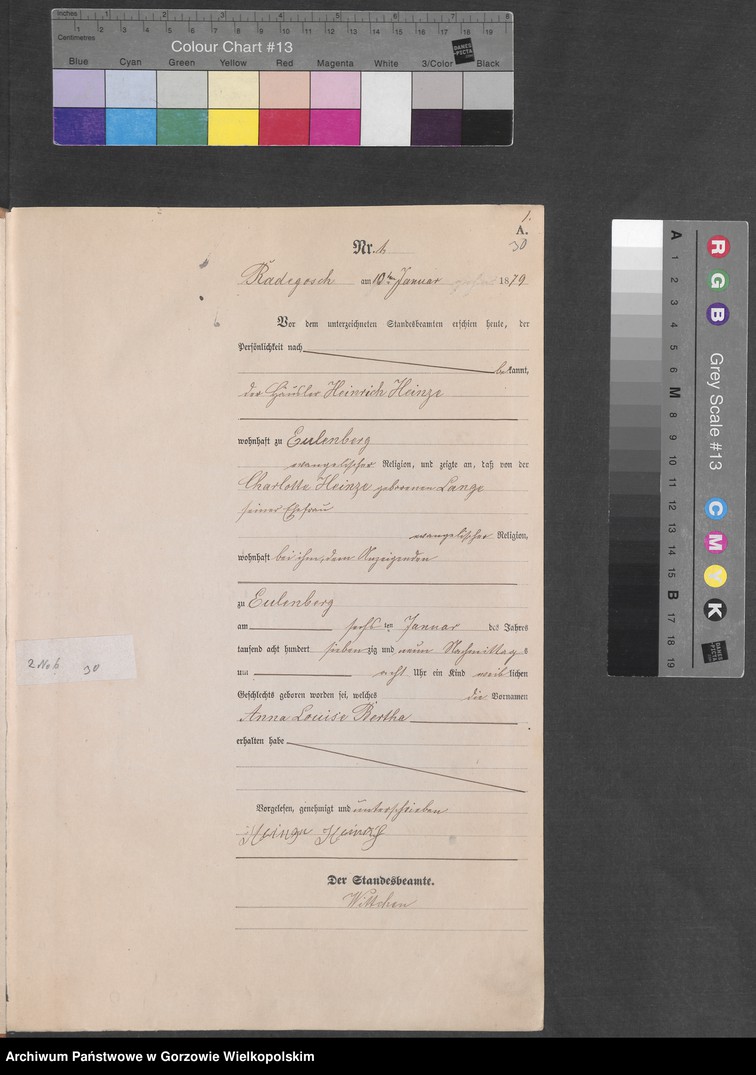 inches 1 2 3 4 5 6 7 8
Centimetres 1 2 3 4 5 6 7 8 9 10 11 12 13 14 15 16 17 18 19
Colour Chart #13
DANES-PICTA.COM
Blue Cyan Green Yellow Red Magenta White 3/Color Black
1.
A.
30
Nr. 1.
Radegosch am 10ten Januar 1879
Vor dem unterzeichneten Standesbeamten erschien heute, der
Persönlichkeit nach
bekannt,
der Häusler Heinrich Heinze
wohnhaft zu Eulenberg
evangelischer Religion, und zeigte an, daß von der
Charlotte Heinze geborenen Lange
seiner Ehefrau
evangelischer Religion,
wohnhaft bei ihm, dem Anzeigenden
zu Eulenberg
am sechs ten Januar des Jahres
tausend acht hundert siebenzig und neun Nachmittags
um acht Uhr ein Kind weiblichen
Geschlechts geboren worden sei, welches die Vornamen
Anna Louise Bertha
erhalten habe
Vorgelesen, genehmigt und unterschrieben
Heinze Heinrich
Der Standesbeamte.
Wittchen
2 No 6 30
A 1 2 3 4 5 6 M 8 9 10 11 12 13 14 15 B 17 18 19
R G B
Grey Scale #13
C M Y K
DANES-PICTA.COM
Archiwum Państwowe w Gorzowie Wielkopolskim